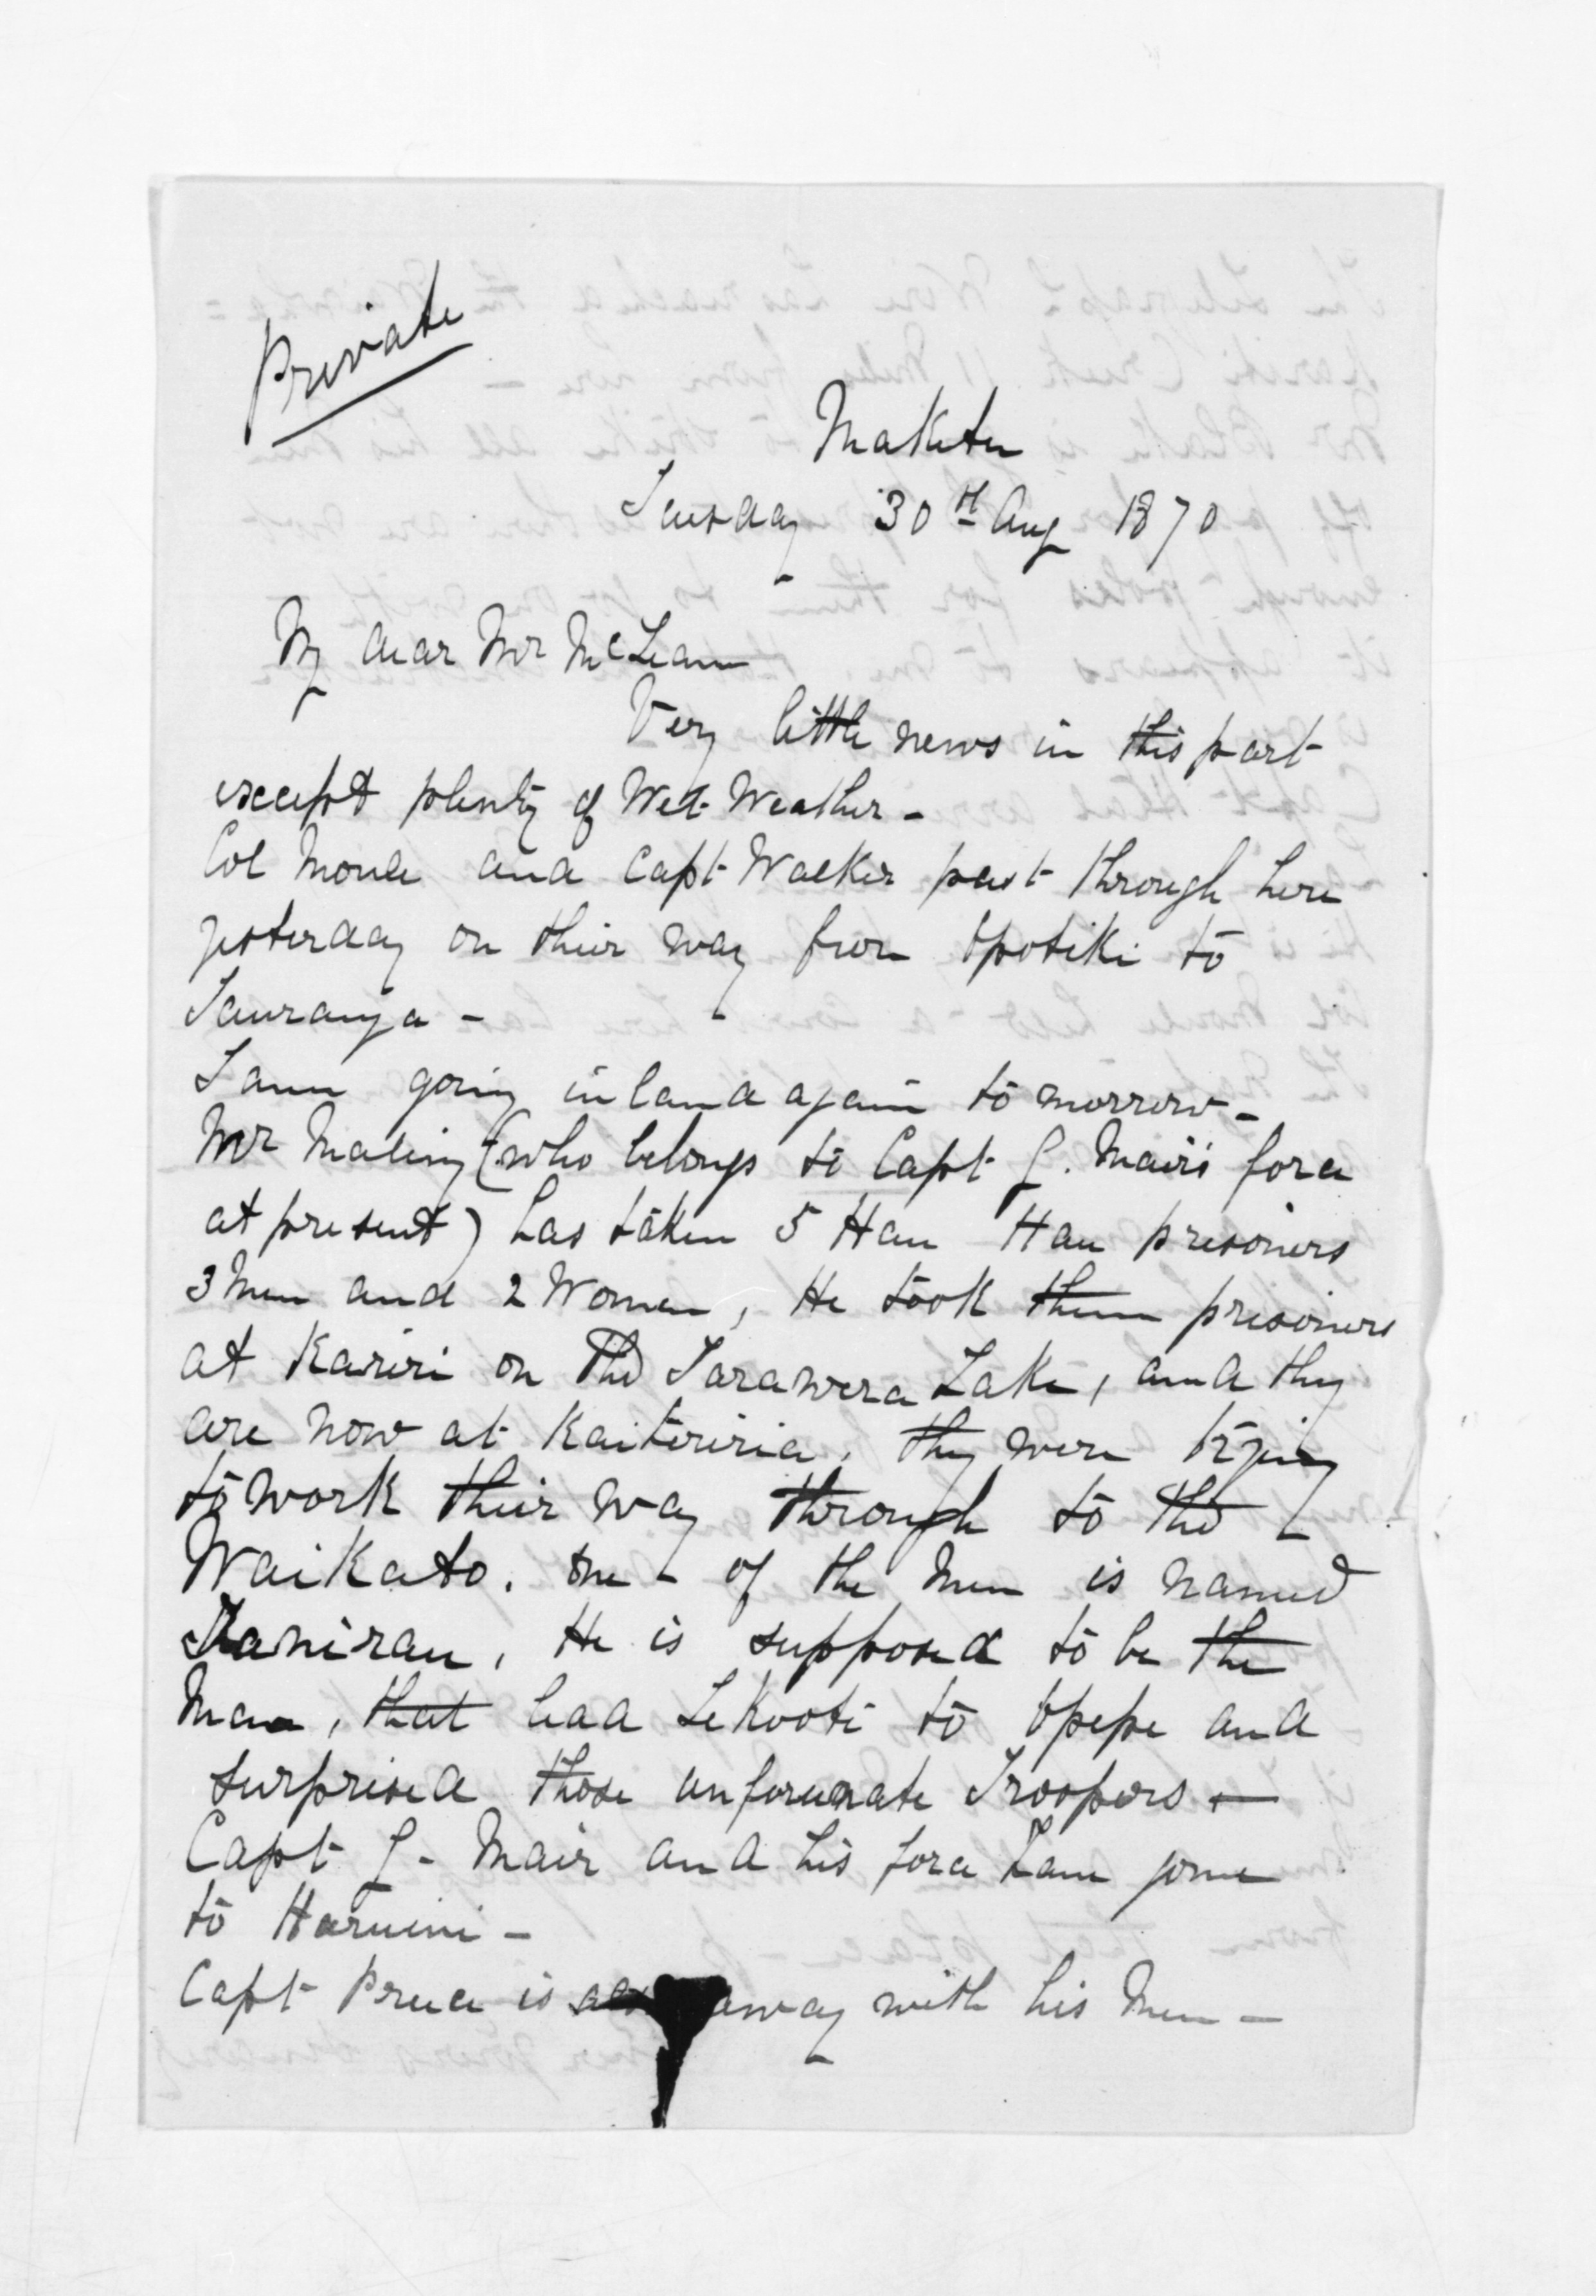 Private
Maketu
Tuesday 30th Aug 1870
My dear Mr McLean
Very little news in this part
except plenty of Wet Weather -
Col Moule and Capt Walker past through here
yesterday on their way from Opotiki to
Tauranga -
I am going inland again to morrow -
Mr Maling (who belongs to Capt G. Mair's force
at present) has taken 5 Hau Hau prisoners
3 Men and 2 Women, He took them prisoners
at Kariri on the Tarawera Lake, and they
are now at Kaiteriria, they were trying
to work their way through to the
Waikato. One - of the Men is named
He is supposed to be the
Man, that lead TeKooti to Opepe and
surprised those unforunate Troopers -
Capt G - Mair and his force I am gone
to Haruini -
Capt Preece is away with his Men -